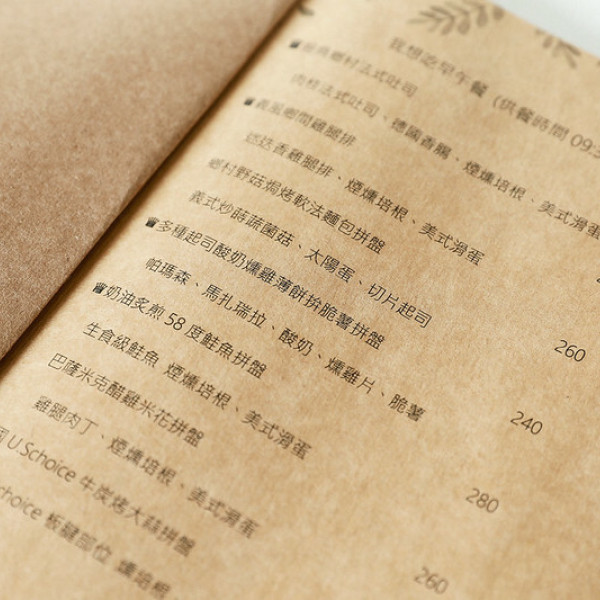 我想吃早午餐（供餐時間 09:3
經典鄉村法式吐司
肉桂法式吐司、德國香腸、煙燻培根、美式滑蛋
義風鄉間雞腿排
迷迭香雞腿排、煙燻培根、美式滑蛋
鄉村野菇焗烤軟法麵包拼盤
義式炒時蔬菌菇、太陽蛋、切片起司
260
多種起司酸奶燻雞薄餅拚脆薯拼盤
帕瑪森、馬扎瑞拉、酸奶、燻雞片、脆薯
240
奶油炙煎 58 度鮭魚拼盤
生食級鮭魚 煙燻培根、美式滑蛋
280
巴薩米克醋雞米花拼盤
雞腿肉丁、煙燻培根、美式滑蛋
260
國 U.S choice 牛炭烤大蒜拼盤
choice 板腱部位 燻培根